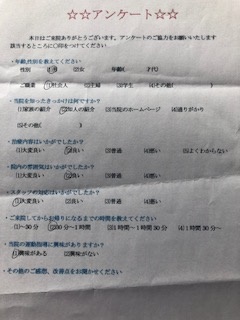 ☆☆アンケート☆☆
本日はご来院ありがとうございます。アンケートのご協力をお願いいたします
該当するところに○印をつけてください
・年齢,性別を教えてください
性別 ①男 ②女 年齢( )才代
ご職業 ①社会人 ②主婦 ③学生 ④その他( )
・当院を知ったきっかけは何ですか?
①家族の紹介 ②知人の紹介 ③当院のホームページ ④通りがかり
⑤その他( )
・治療内容はいかがでしたか?
①大変良い ②良い ③普通 ④悪い ⑤よくわからない
・院内の雰囲気はいかがでしたか?
①大変良い ②良い ③普通 ④悪い
・スタッフの対応はいかがでしたか?
①大変良い ②良い ③普通 ④悪い
・ご来院してからお帰りになるまでの時間を教えてください
①~30分 ②30分~1時間 ③1時間~1時間30分 ④1時間30分~
・当院の運動指導に興味がありますか?
①興味がある ②興味がない
・その他のご感想、改善点をお聞かせください